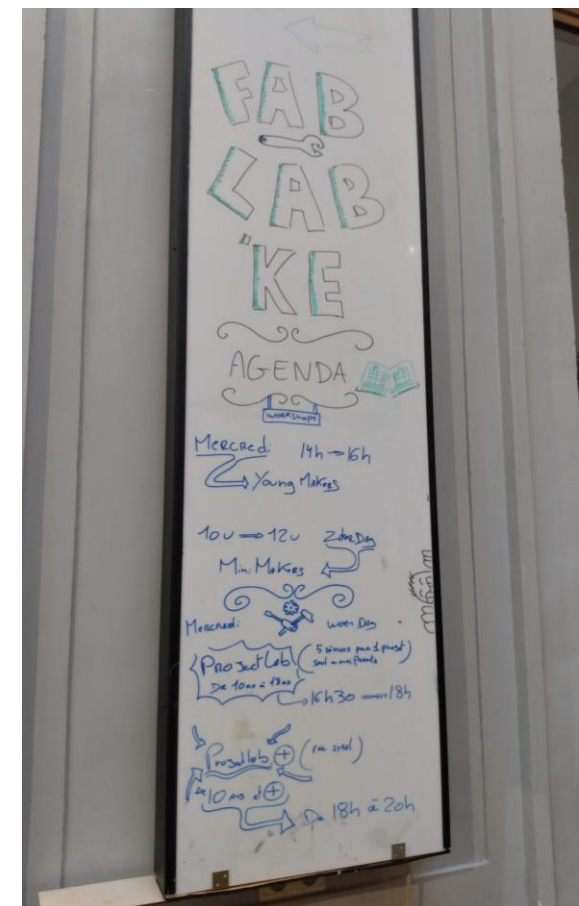 FAB
LAB
'KE
AGENDA
WORKSHOPS
Mercredi 14h → 16h
Young Makers
10u → 12u ZaterDag
Mini Makers
Mercredi woensDag
Project Lab (5 séances pour 1 projet
De 10 ans à 18 ans
→ 16h30 → 18h
Projectlab +
De 10 ans et +
De 18h à 20h